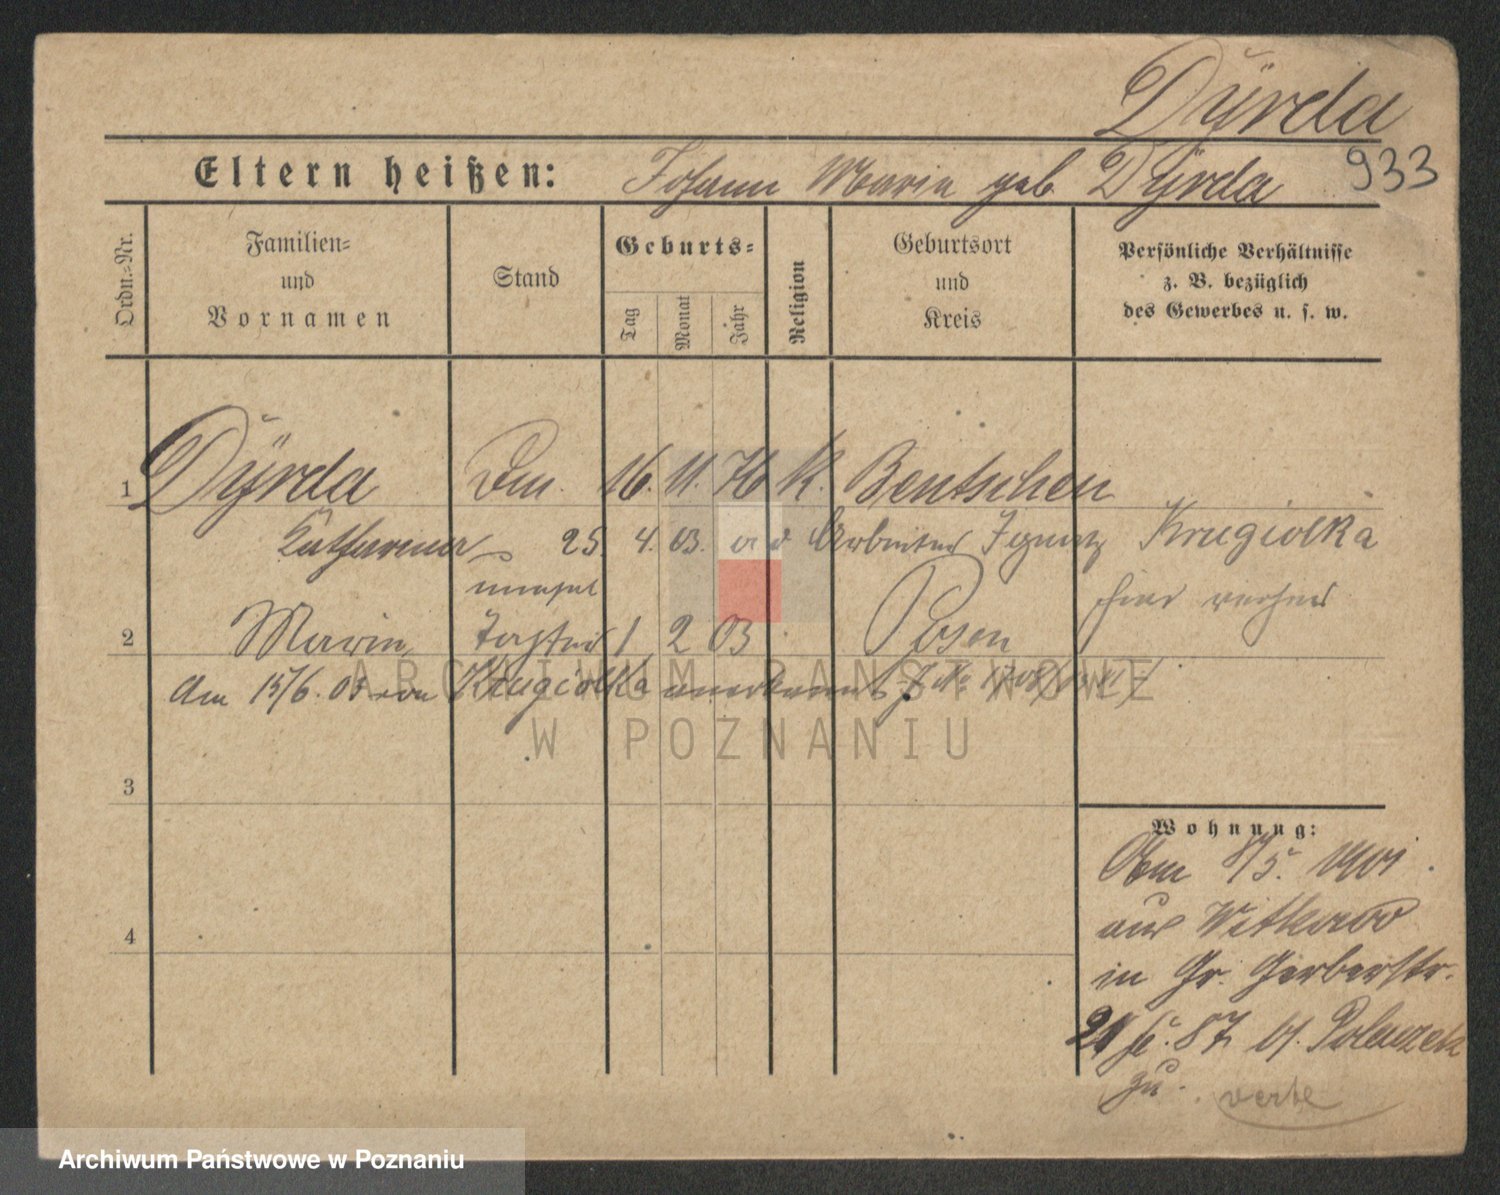 Dÿrda
Eltern heißen: Johann Maria geb. Dÿrda 933
Ordn.-Nr.
Familien- und Vornamen
Stand
Geburts-
Tag
Monat
Jahr
Religion
Geburtsort und Kreis
Persönliche Verhältnisse z. B. bezüglich des Gewerbes u. s. w.
1 Dÿrda 16. 11. 76 K. Bentschen
Katharina 25. 4. 03. Arbeiter Ignatz Krugiolka
unehel
hier
2 Maria, Tochter 1 2 03 Posen
Am 15/6. 03 von Krugiolka anerkannt
3
4
Wohnung:
Am 8/5. 1901
aus Witkowo
in Gr. Gerberstr.
21 87 bei Polaczek
zu.
verte
ARCHIWUM PAŃSTWOWE
W POZNANIU
Archiwum Państwowe w Poznaniu